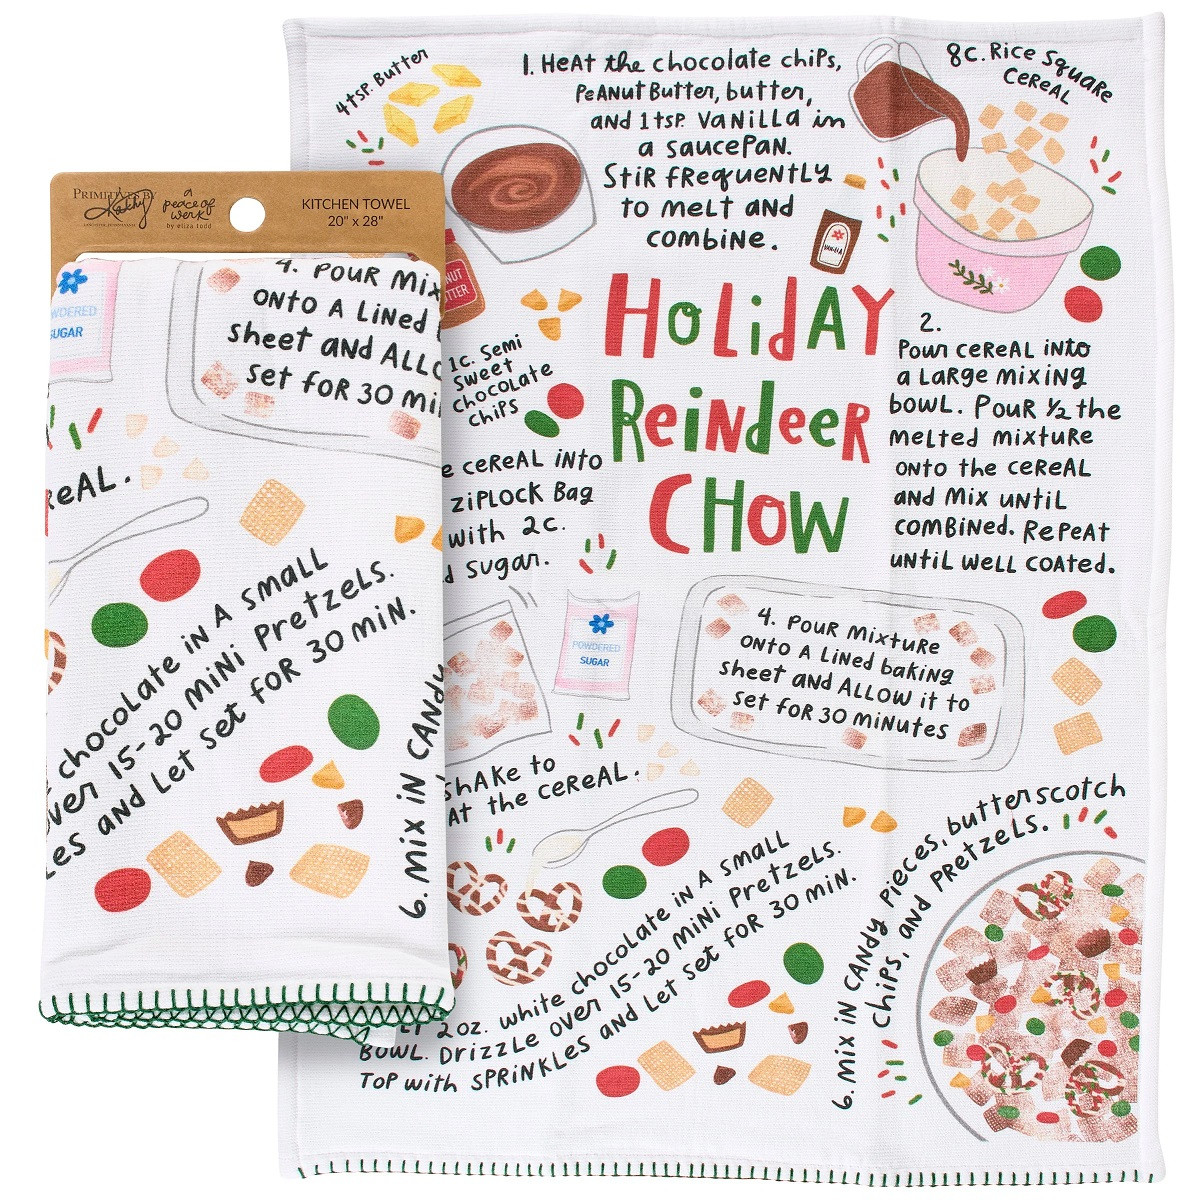 PRIMITIVES BY
Kathy
a
peace of
work
by eliza todd
KITCHEN TOWEL
20" x 28"
WDERED
SUGAR
4. POUR Mix
ONTO A LiNed
sheet and ALLO
set for 30 mi
ReAL.
chocolate iN A small
ver 15-20 MiNi Pretzels.
es and Let set for 30 min.
6. Mix iN CANdy
4 tsp. Butter
1. HeAt the chocolate chips,
PeANut Butter, butter,
and 1 tsp. vanilla in
a saucepan.
Stir frequently
to melt and
combine.
8c. Rice Square
CeReAL
VANILLA
NUT
TTER
1c. Semi
Sweet
chocolate
chips
HOLiDAY
ReiNdeeR
CHOW
2.
Pour cereal into
a large mixing
bowl. Pour 1/2 the
melted mixture
onto the cereal
and mix until
combined. Repeat
until well coated.
e cereal into
ziplock Bag
with 2c.
d sugar.
POWDERED
SUGAR
4. Pour mixture
onto a lined baking
sheet and ALLOW it to
set for 30 minutes
shake to
At the cereal.
2 oz. white chocolate in A small
BOWL. Drizzle over 15-20 MiNi Pretzels.
Top with SPRiNkles and Let set for 30 min.
6. Mix iN CANdy pieces, butterscotch
Chips, and pretzels.